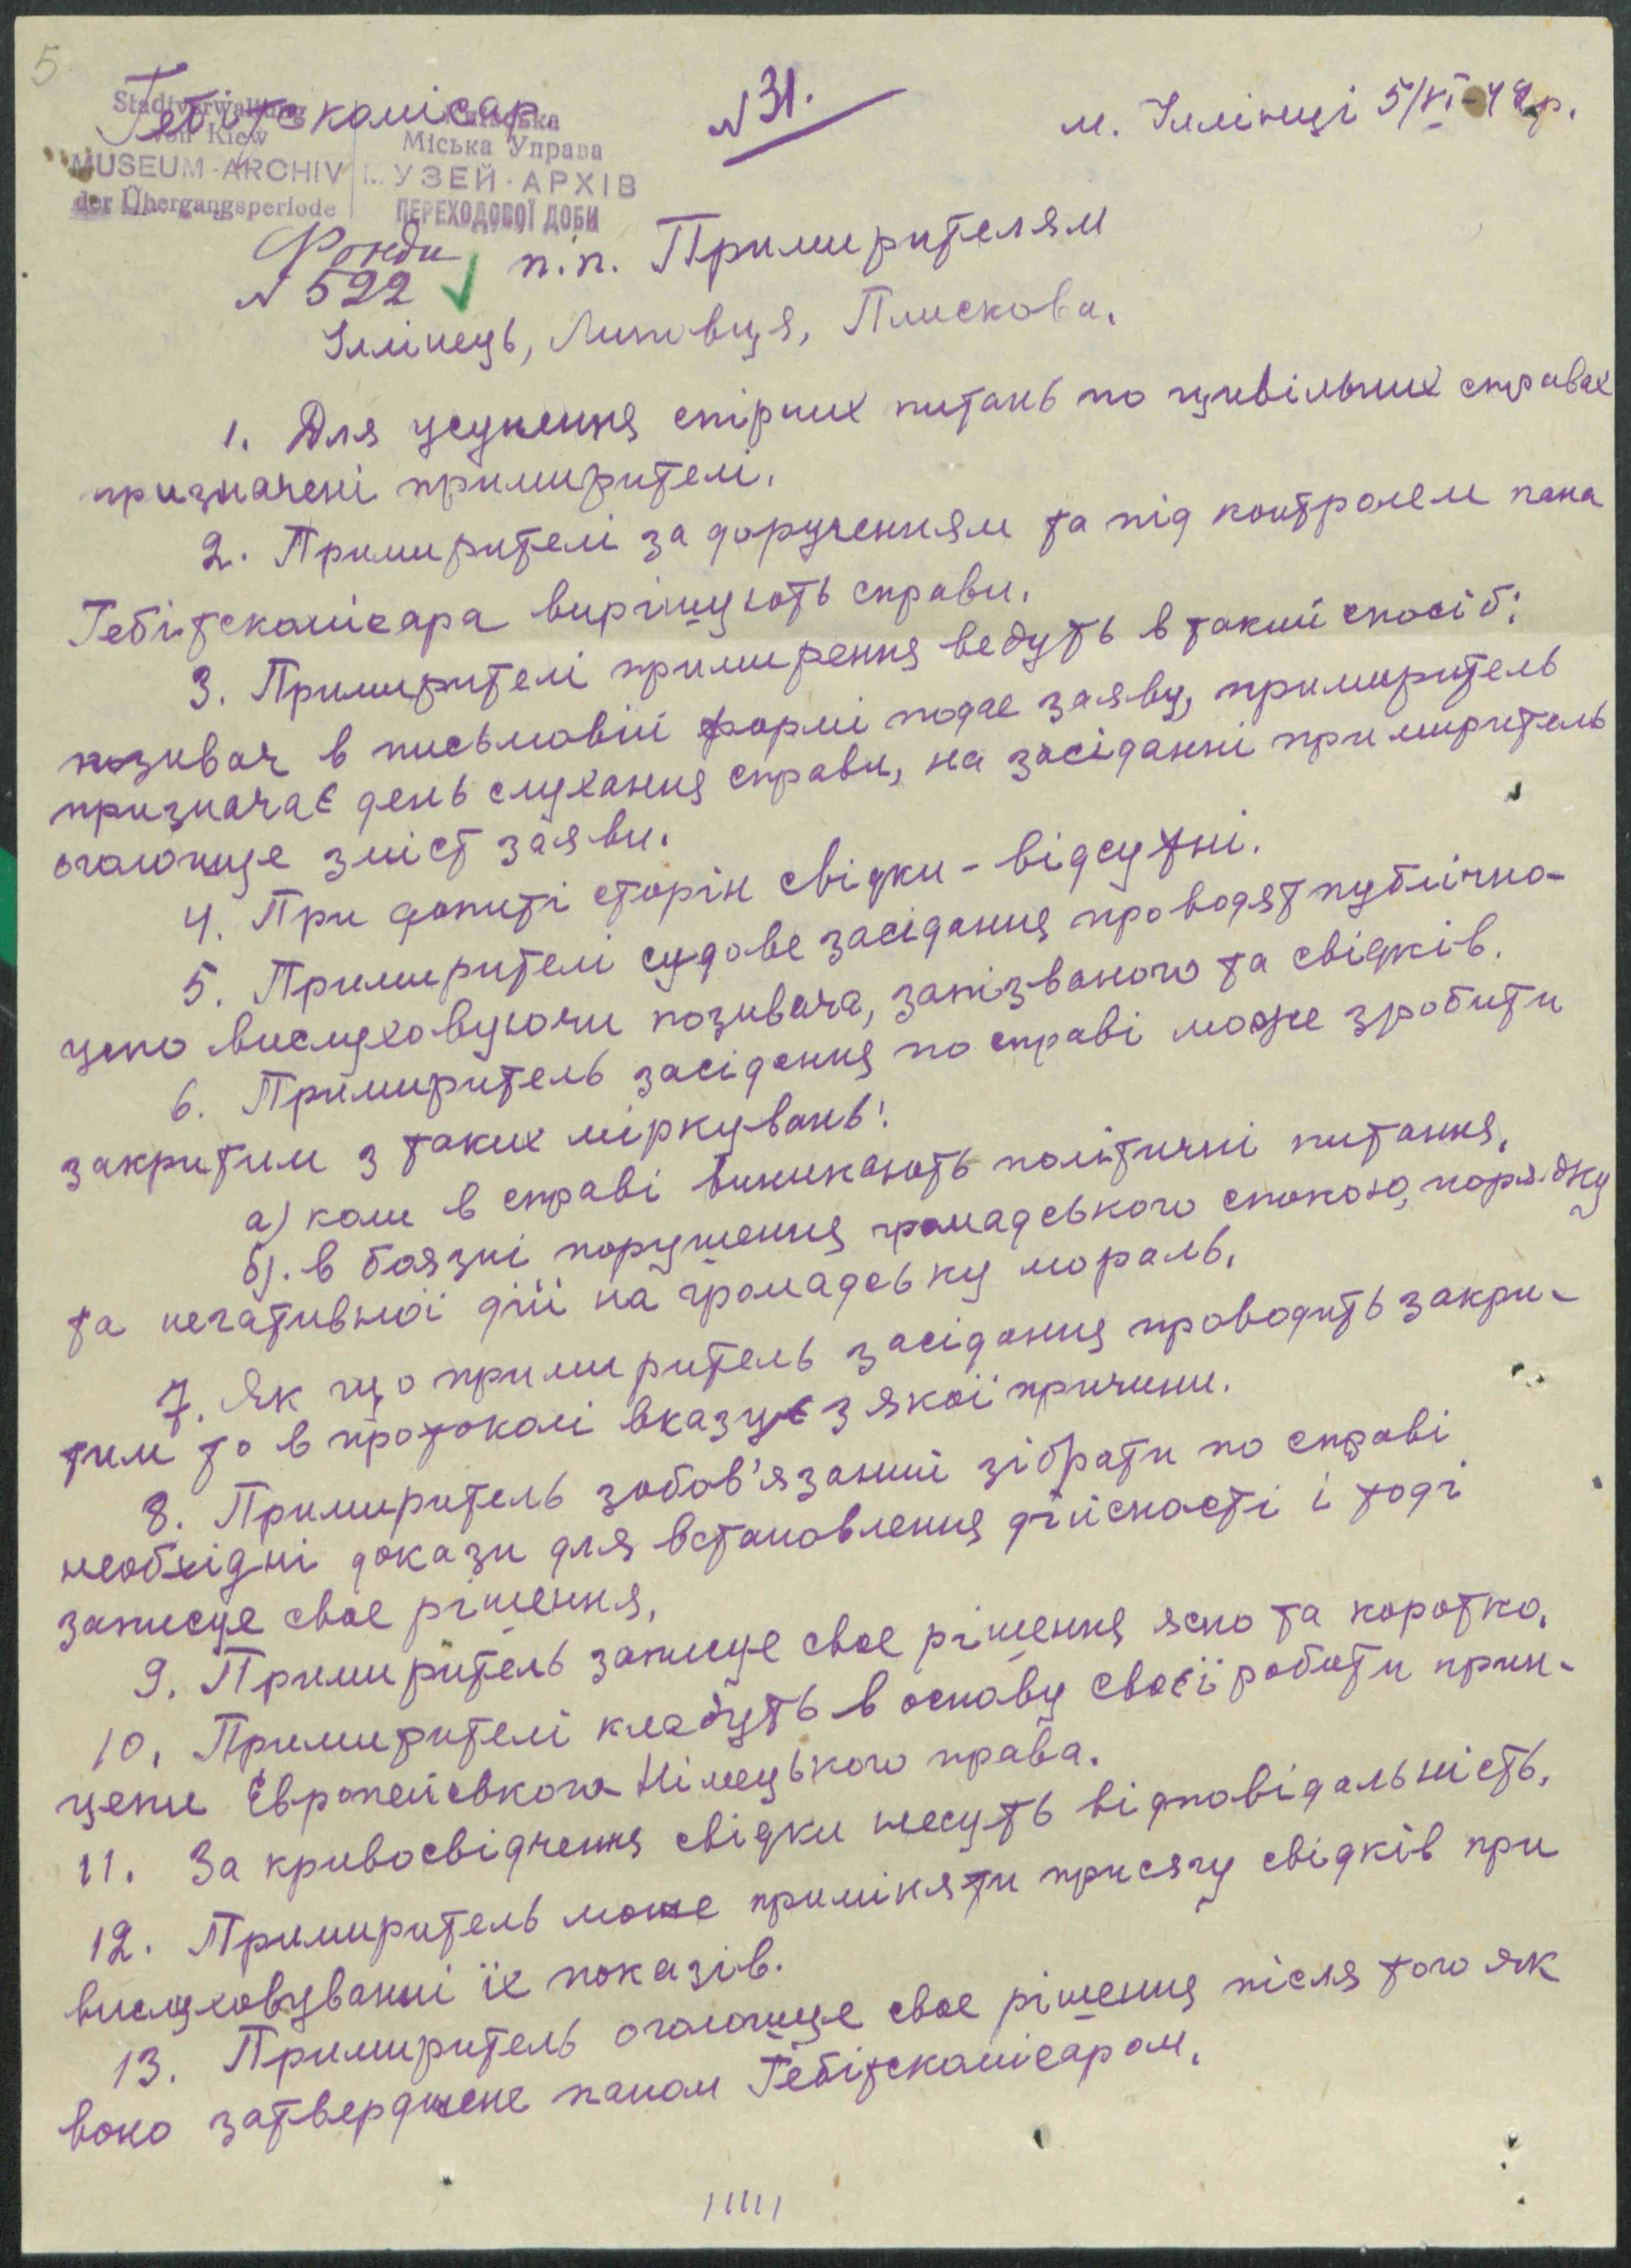 5
Гебітскомісар
№31.
м. Іллінці 5/VI-42р.
Stadtverwaltung
von Kiew
MUSEUM-ARCHIV
der Übergangsperiode
Київська
Міська Управа
МУЗЕЙ-АРХІВ
ПЕРЕХОДОВОЇ ДОБИ
Фонди
№522
п.п. Примирителям
Іллінець, Липовця, Плискова.
1. Для усунення спірних питань по цивільних справах
призначені примирителі.
2. Примирителі за дорученням та під контролем пана
Гебітскомісара вирішують справи.
3. Примирителі примирення ведуть в такий спосіб:
позивач в письмовій формі подає заяву, примиритель
призначає день слухання справи, на засіданні примиритель
оголошує зміст заяви.
4. При допиті сторін свідки - відсутні.
5. Примирителі судове засідання проводят публічно-
усно вислуховуючи позивача, запізваного та свідків.
6. Примиритель засідання по справі може зробити
закритим з таких міркувань:
а) коли в справі виникають політичні питання,
б). в боязні порушення громадського спокою, порядку
та негативної дії на громадську мораль.
7. Як що примиритель засідання проводить закри-
тим то в протоколі вказує з якої причини.
8. Примиритель зобов'язаний зібрати по справі
необхідні докази для встановлення дійсності і тоді
записує своє рішення.
9. Примиритель записує своє рішення ясно та коротко.
10. Примирителі кладуть в основу своєї роботи прин-
ципи Європейського Німецького права.
11. За кривосвідчення свідки несуть відповідальність.
12. Примиритель може приміняти присягу свідків при
вислуховуванні їх показів.
13. Примиритель оголошує своє рішення після того як
воно затверджене паном Гебітскомісаром.